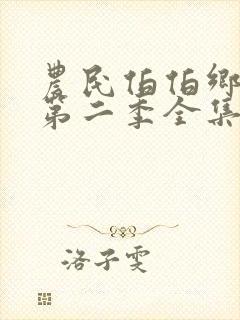 農民伯伯鄉
第二季全集
洛子雯